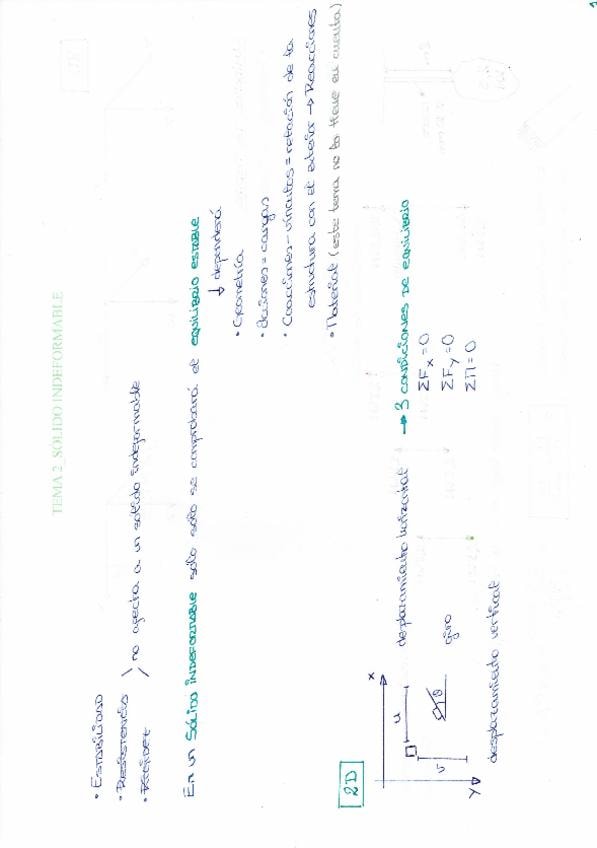 TEMA 2_SÓLIDO INDEFORMABLE
• ESTABILIDAD
• Resistencia
• Rigidez
no afecta a un sólido indeformable
En un SÓLIDO INDEFORMABLE sólo se comprobará el EQUILIBRIO ESTABLE
↓ dependerá
• Geometría
• Acciones = cargas
• Coacciones - vínculos = relación de la
estructura con el exterior → Reacciones
• Material (este tema no lo tiene en cuenta)
2D
x
y
u
v
θ
desplazamiento horizontal
giro
desplazamiento vertical
→ 3 CONDICIONES DE EQUILIBRIO
ΣFx = 0
ΣFy = 0
ΣM = 0